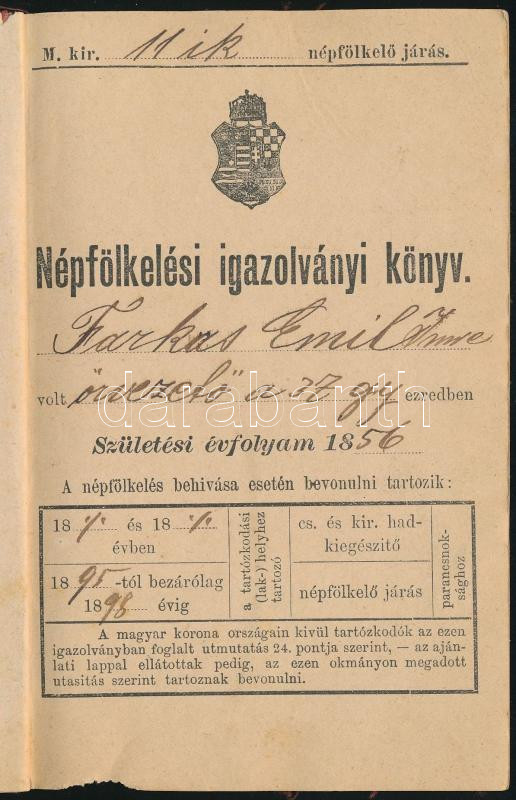 M. kir. 11 ik népfölkelő járás.
Népfölkelési igazolványi könyv.
Farkas Emil Imre
volt őrvezető a 37 gy ezredben
Születési évfolyam 1856
A népfölkelés behivása esetén bevonulni tartozik:
18 ·/. és 18 ·/.
évben
1895-től bezárólag
1898 évig
a tartózkodási
(lak-) helyhez
tartozó
cs. és kir. had-
kiegészitő
népfölkelő járás
parancsnok-
sághoz
A magyar korona országain kivül tartózkodók az ezen
igazolványban foglalt utmutatás 24. pontja szerint, — az aján-
lati lappal ellátottak pedig, az ezen okmányon megadott
utasitás szerint tartoznak bevonulni.
darabanth